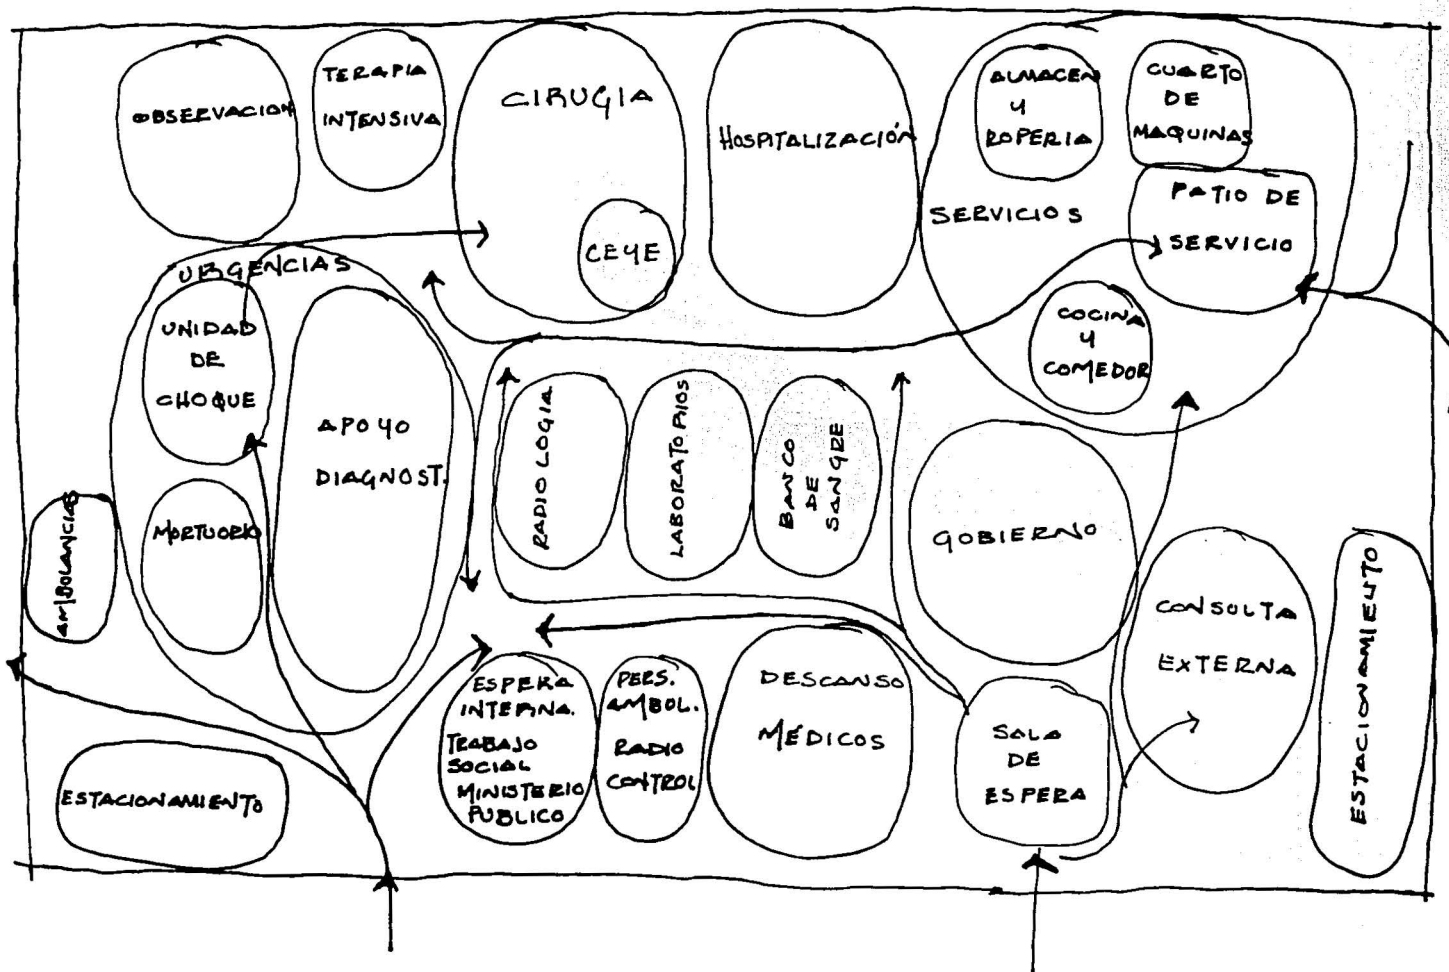 OBSERVACION
TERAPIA
INTENSIVA
CIRUGIA
CEYE
HOSPITALIZACIÓN
ALMACEN
Y
ROPERIA
CUARTO
DE
MAQUINAS
SERVICIOS
PATIO DE
SERVICIO
COCINA
Y
COMEDOR
URGENCIAS
UNIDAD
DE
CHOQUE
APOYO
DIAGNOST.
MORTUORIO
AMBOLANCIAS
RADIOLOGIA
LABORATORIOS
BANCO
DE
SANGRE
GOBIERNO
CONSULTA
EXTERNA
ESTACIONAMIENTO
ESTACIONAMIENTO
ESPERA
INTERNA.
TRABAJO
SOCIAL
MINISTERIO
PUBLICO
PERS.
AMBOL.
RADIO
CONTROL
DESCANSO
MÉDICOS
SALA
DE
ESPERA